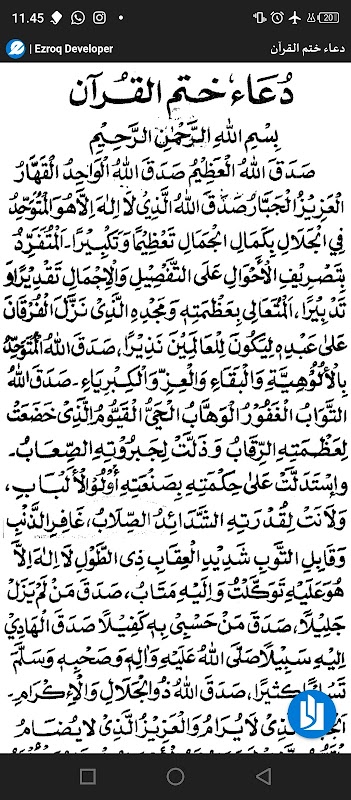 11.45
20
Ezroq Developer |
دعاء ختم القرآن
دُعَاء ختم القرآن
بِسْمِ اللهِ الرَّحْمٰنِ الرَّحِيْمِ
صَدَقَ اللهُ الْعَظِيْمُ صَدَقَ اللهُ الْوَاحِدُ الْقَهَّارُ
الْعَزِيْزُ الْجَبَّارُ صَدَقَ اللهُ الَّذِيْ لَا اِلٰهَ اِلَّا هُوَ الْمُتَوَحِّدُ
فِي الْجَلَالِ بِكَمَالِ الْجَمَالِ تَعْظِيْمًا وَتَكْبِيْرًا. الْمُتَفَرِّدُ
بِتَصْرِيْفِ الْأَحْوَالِ عَلَى التَّفْصِيْلِ وَالْإِجْمَالِ تَقْدِيْرًا وَ
تَدْبِيْرًا، الْمُتَعَالِي بِعَظَمَتِهِ وَمَجْدِهِ الَّذِيْ نَزَّلَ الْفُرْقَانَ
عَلٰى عَبْدِهِ لِيَكُوْنَ لِلْعَالَمِيْنَ نَذِيْرًا، صَدَقَ اللهُ الْمُتَوَحِّدُ
بِالْأُلُوْهِيَّةِ وَالْبَقَاءِ وَالْعِزِّ وَالْكِبْرِيَاءِ. صَدَقَ اللهُ
التَّوَّابُ الْغَفُوْرُ الْوَهَّابُ الْحَيُّ الْقَيُّوْمُ الَّذِيْ خَضَعَتْ
لِعَظَمَتِهِ الرِّقَابُ وَذَلَّتْ لِجَبَرُوْتِهِ الصِّعَابُ.
وَاسْتَدَلَّتْ عَلٰى حِكْمَتِهِ بِصَنْعَتِهِ أُوْلُو الْأَلْبَابِ،
وَلَانَتْ لِقُدْرَتِهِ الشَّدَائِدُ الصِّلَابُ، غَافِرِ الذَّنْبِ
وَقَابِلِ التَّوْبِ شَدِيْدِ الْعِقَابِ ذِي الطَّوْلِ لَا اِلٰهَ اِلَّا
هُوَ عَلَيْهِ تَوَكَّلْتُ وَاِلَيْهِ مَتَابُ، صَدَقَ مَنْ لَمْ يَزَلْ
جَلِيْلًا، صَدَقَ مَنْ حَسْبِيْ بِهِ كَفِيْلًا صَدَقَ الْهَادِيْ
اِلَيْهِ سَبِيْلًا صَلَّى اللهُ عَلَيْهِ وَاٰلِهِ وَصَحْبِهِ وَسَلَّمَ
كَثِيْرًا، صَدَقَ اللهُ ذُو الْجَلَالِ وَالْإِكْرَامِ.
الَّذِيْ لَا يُرَامُ وَالْعَزِيْزُ الَّذِيْ لَا يُضَامُ